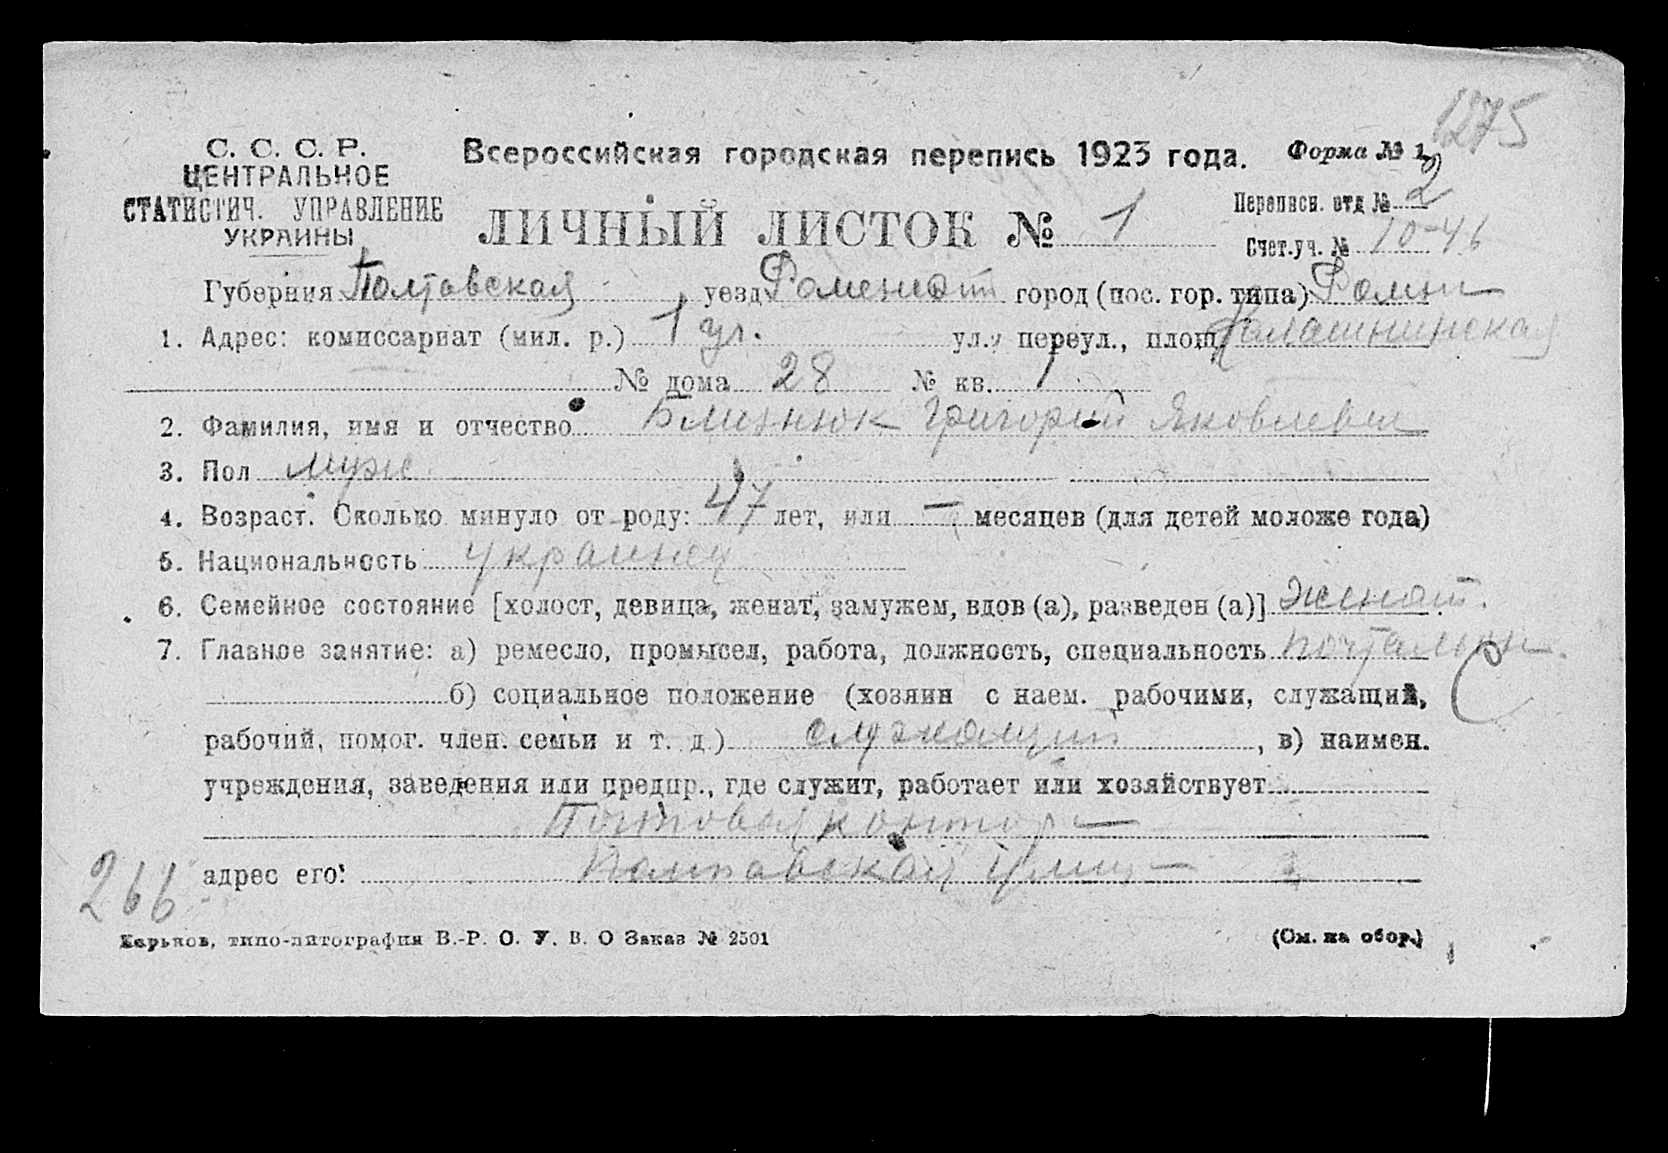 1275
С. С. С. Р.
ЦЕНТРАЛЬНОЕ
СТАТИСТИЧ. УПРАВЛЕНИЕ
УКРАИНЫ
Всероссийская городская перепись 1923 года.
Форма № 1
ЛИЧНЫЙ ЛИСТОК № 1
Переписн. отд № 2
Счет.уч. № 10-46
Губерния Полтавская уезд Роменский город (пос. гор. типа) Ромны
1. Адрес: комиссариат (мил. р.) 1 ул., переул., площ.
№ дома 28 № кв. 1
2. Фамилия, имя и отчество Близнюк Григорий Яковлевич
3. Пол муж.
4. Возраст. Сколько минуло от роду: 47 лет, или — месяцев (для детей моложе года)
5. Национальность украинец
6. Семейное состояние [холост, девица, женат, замужем, вдов (а), разведен (а)] женат.
7. Главное занятие: а) ремесло, промысел, работа, должность, специальность почтальон.
б) социальное положение (хозяин с наем. рабочими, служащий,
рабочий, помог. член. семьи и т. д.) служащий, в) наимен.
учреждения, заведения или предпр., где служит, работает или хозяйствует
Почтовая контора
адрес его: Полтавская улица
266
Харьков, типо-литография В.-Р. О. У. В. О Заказ № 2501
(См. на обор.)